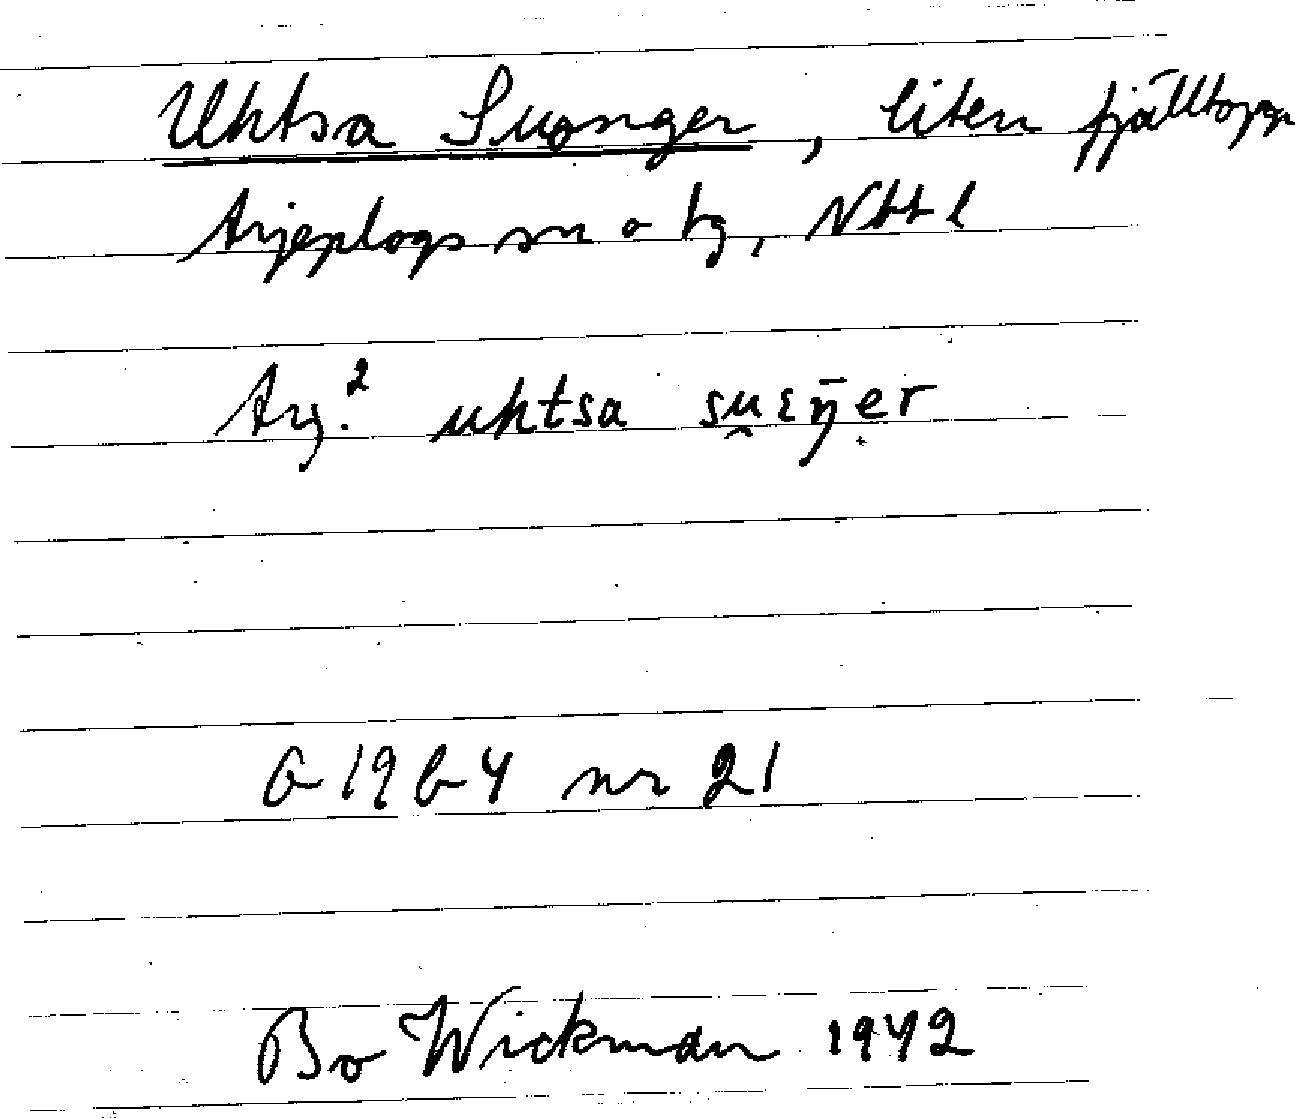 Uhtsa Suonger, liten fjälltopp
Arjeplogs sn o tg, Nbtl
Arj.² uhtsa su̯ɛŋ̄ẹr
G 19 b 4 nr 21
Bo Wickman 1942